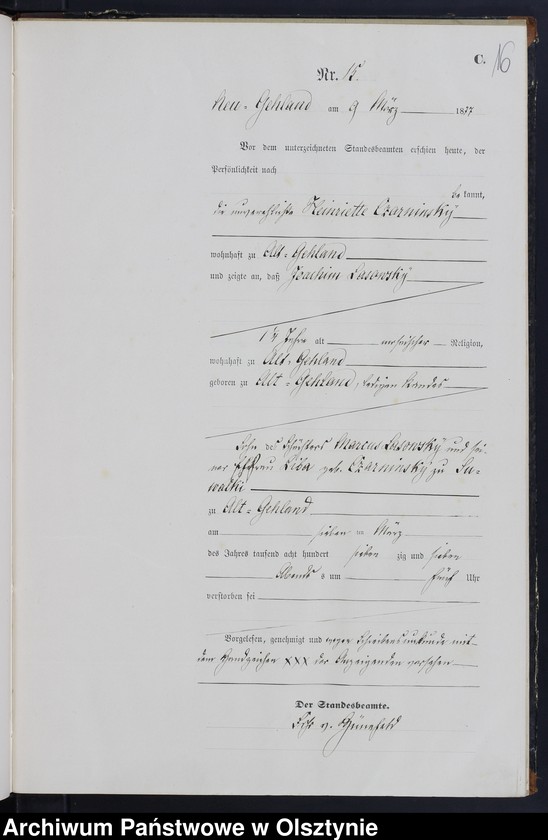 C. 16
Nr. 15.
Neu-Gehland am 9 März 1877
Vor dem unterzeichneten Standesbeamten erschien heute, der
Persönlichkeit nach
bekannt,
die unverehelichte Heinriette Czarninsky
wohnhaft zu Alt-Gehland
und zeigte an, daß Joachim Lasowsky
Jahre alt mosaischer Religion,
wohnhaft zu Alt-Gehland
geboren zu Alt-Gehland, ledigen Standes
Sohn des Marcus Lasowsky und sei-
ner Ehefrau geb. Czarninsky zu Su-
walki
zu Alt-Gehland
am sieben ten März
des Jahres tausend acht hundert sieben zig und sieben
Abends um fünf Uhr
verstorben sei
Vorgelesen, genehmigt und wegen Schreibensunkunde mit
dem Handzeichen XXX der Anzeigenden versehen
Der Standesbeamte.
v. Grünefeld
Archiwum Państwowe w Olsztynie